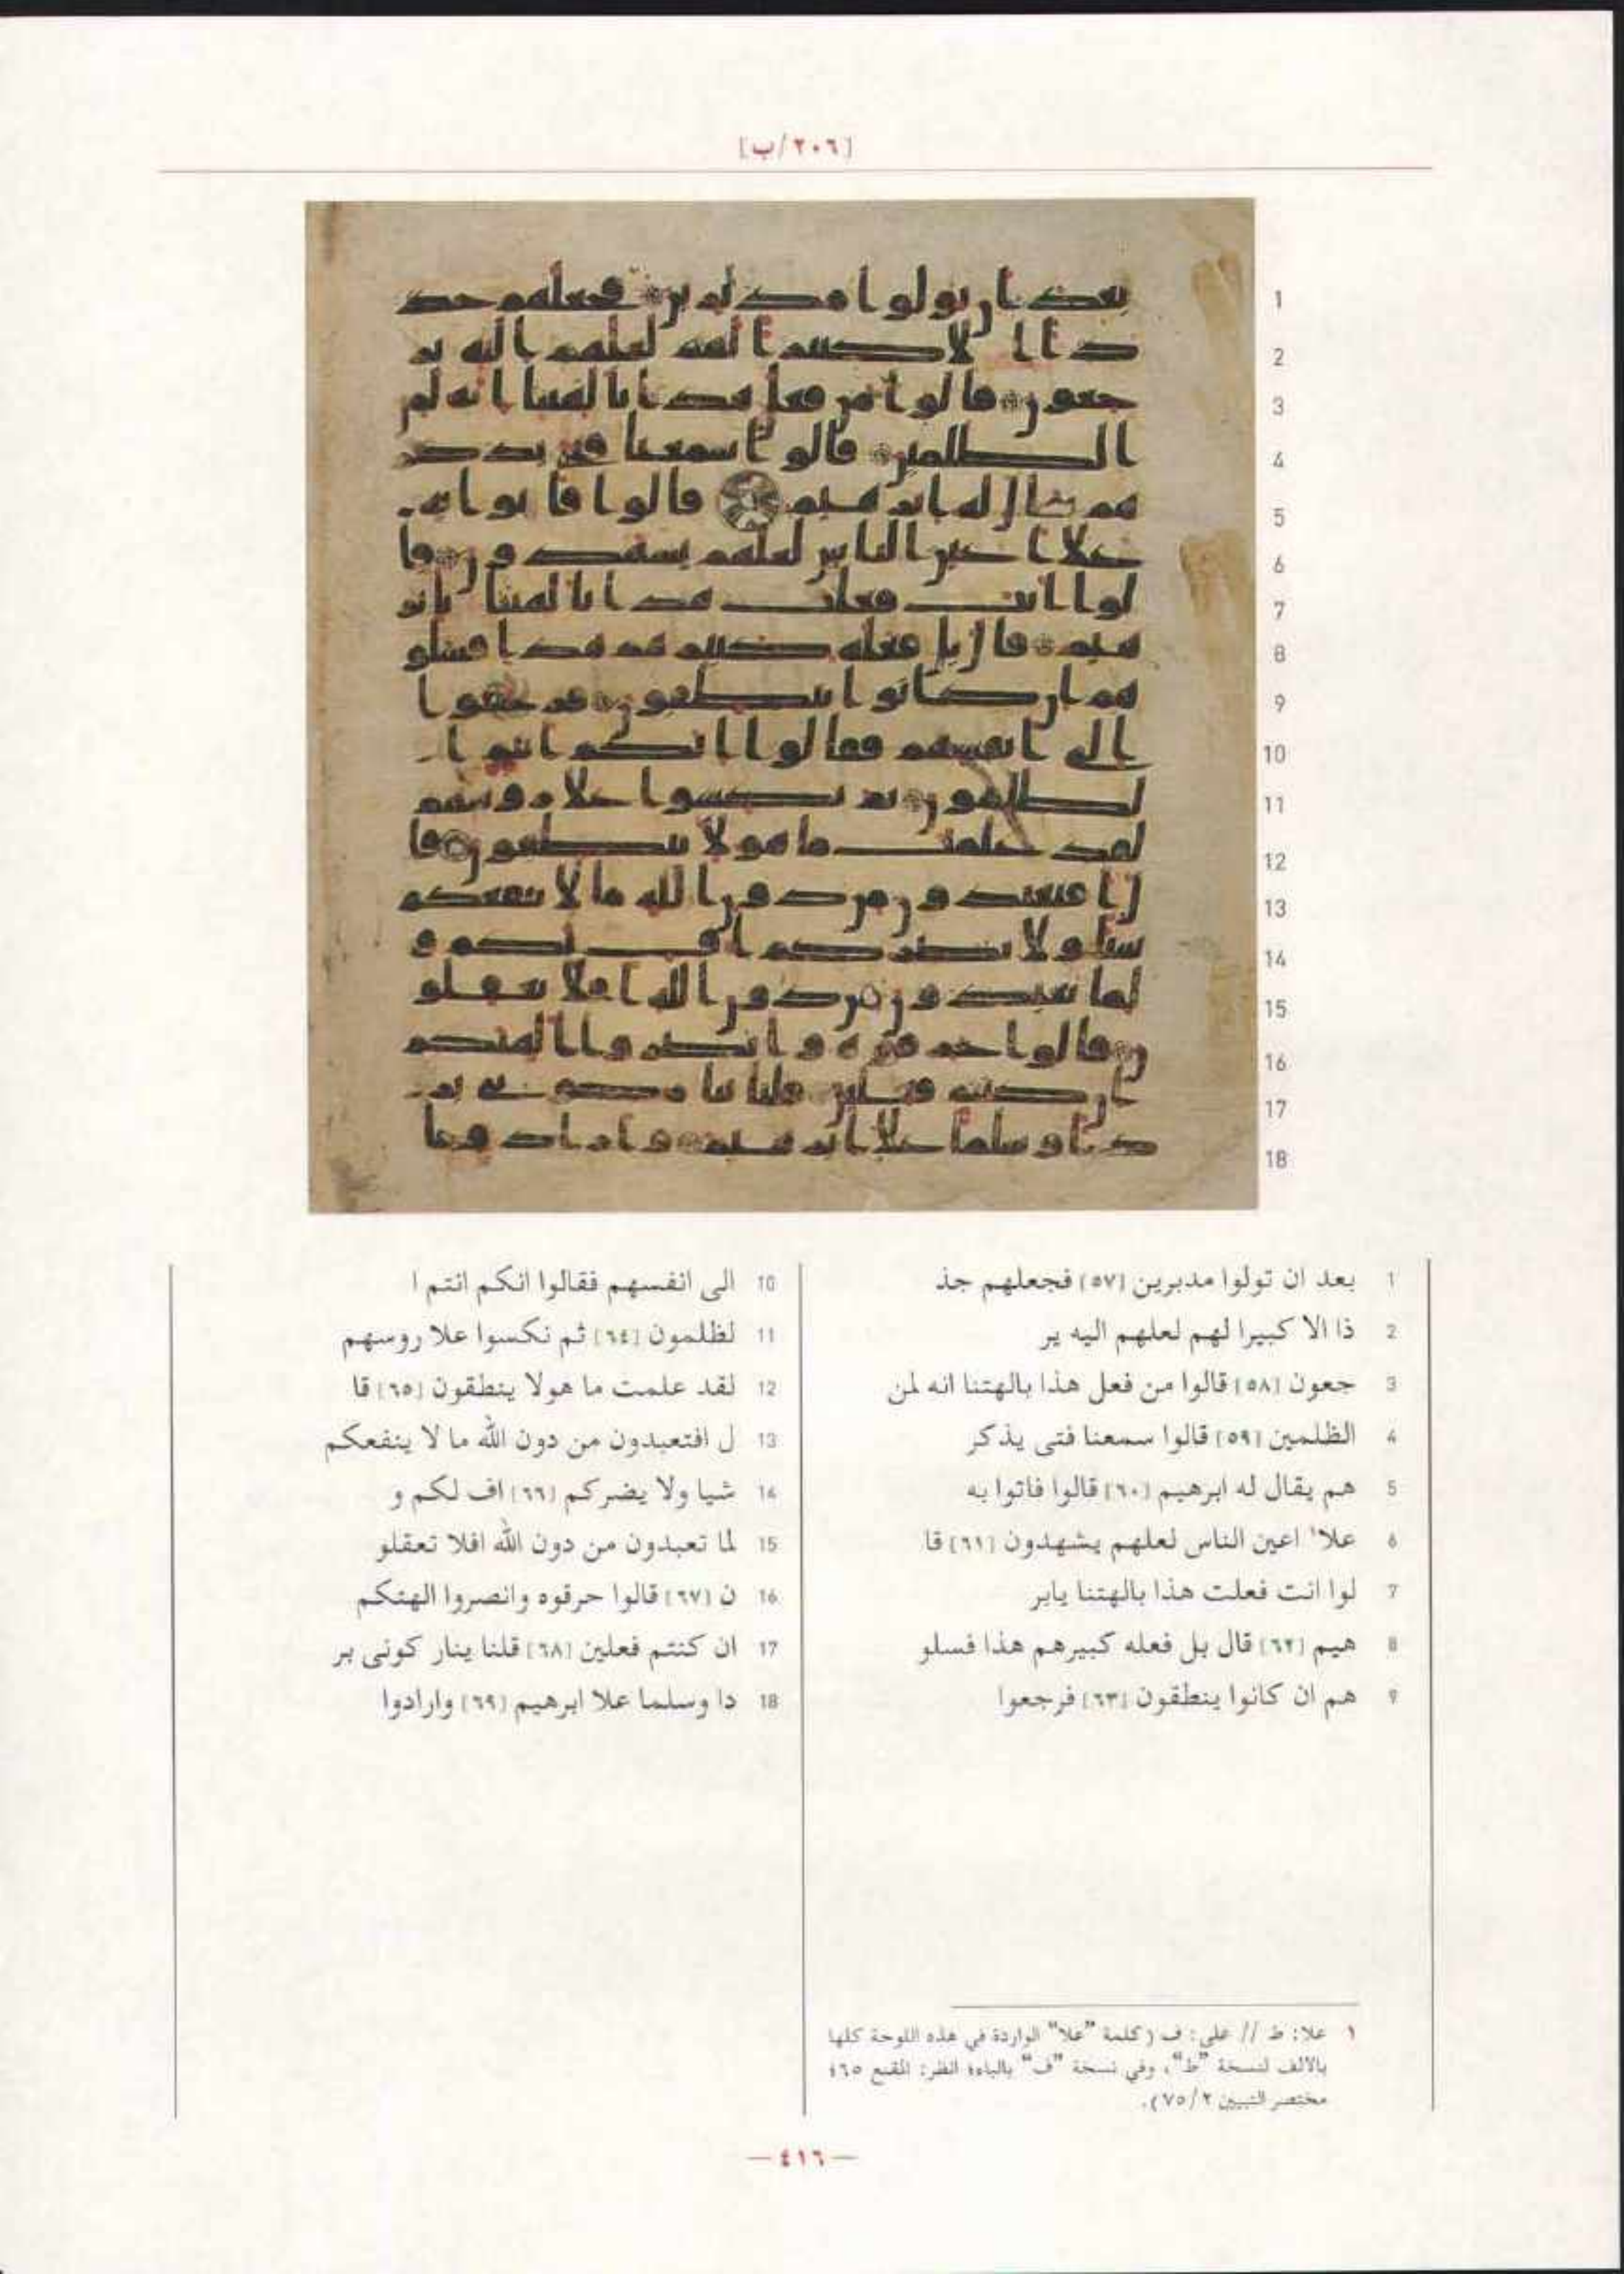 [٢٠٦/ب]
1
2
3
4
5
6
7
8
9
10
11
12
13
14
15
16
17
18
1 بعد ان تولوا مدبرين [٥٧] فجعلهم جذ
2 ذا الا كبيرا لهم لعلهم اليه ير
3 جعون [٥٨] قالوا من فعل هذا بالهتنا انه لمن
4 الظلمين [٥٩] قالوا سمعنا فتى يذكر
5 هم يقال له ابرهيم [٦٠] قالوا فاتوا به
6 علا١ اعين الناس لعلهم يشهدون [٦١] قا
7 لوا انت فعلت هذا بالهتنا يابر
8 هيم [٦٢] قال بل فعله كبيرهم هذا فسلو
9 هم ان كانوا ينطقون [٦٣] فرجعوا
10 الى انفسهم فقالوا انكم انتم ا
11 لظلمون [٦٤] ثم نكسوا علا روسهم
12 لقد علمت ما هولا ينطقون [٦٥] قا
13 ل افتعبدون من دون الله ما لا ينفعكم
14 شيا ولا يضركم [٦٦] اف لكم و
15 لما تعبدون من دون الله افلا تعقلو
16 ن [٦٧] قالوا حرقوه وانصروا الهتكم
17 ان كنتم فعلين [٦٨] قلنا ينار كونى بر
18 دا وسلما علا ابرهيم [٦٩] وارادوا
١ علا: ط // على: ف (كلمة "علا" الواردة في هذه اللوحة كلها
بالالف لنسخة "ط"، وفي نسخة "ف" بالياء؛ انظر: المقنع ٦٥؛
مختصر التبيين ٧٥/٢).
— ٤١٦ —